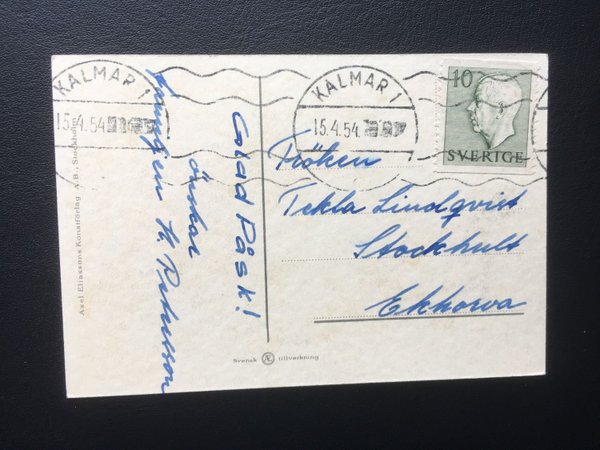 KALMAR 1
15.4.54
KALMAR 1
15.4.54
10
SVERIGE
Glad Påsk!
önskar
Fröken
Tekla Lindqvist
Stockhult
Ekhorva
Axel Eliassons Konstförlag A.B., Stockholm
Svensk Æ tillverkning